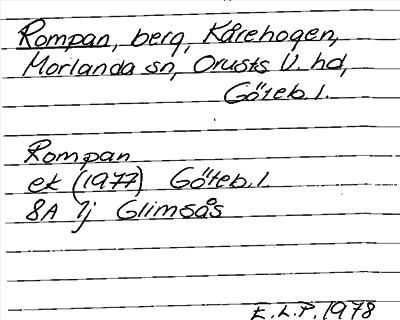 Rompan, berg, Kårehogen,
Morlanda sn, Orusts V. hd,
Göteb. l.
Rompan
ek (1977) Göteb. l.
8A 7j Glimsås
E.L.P. 1978